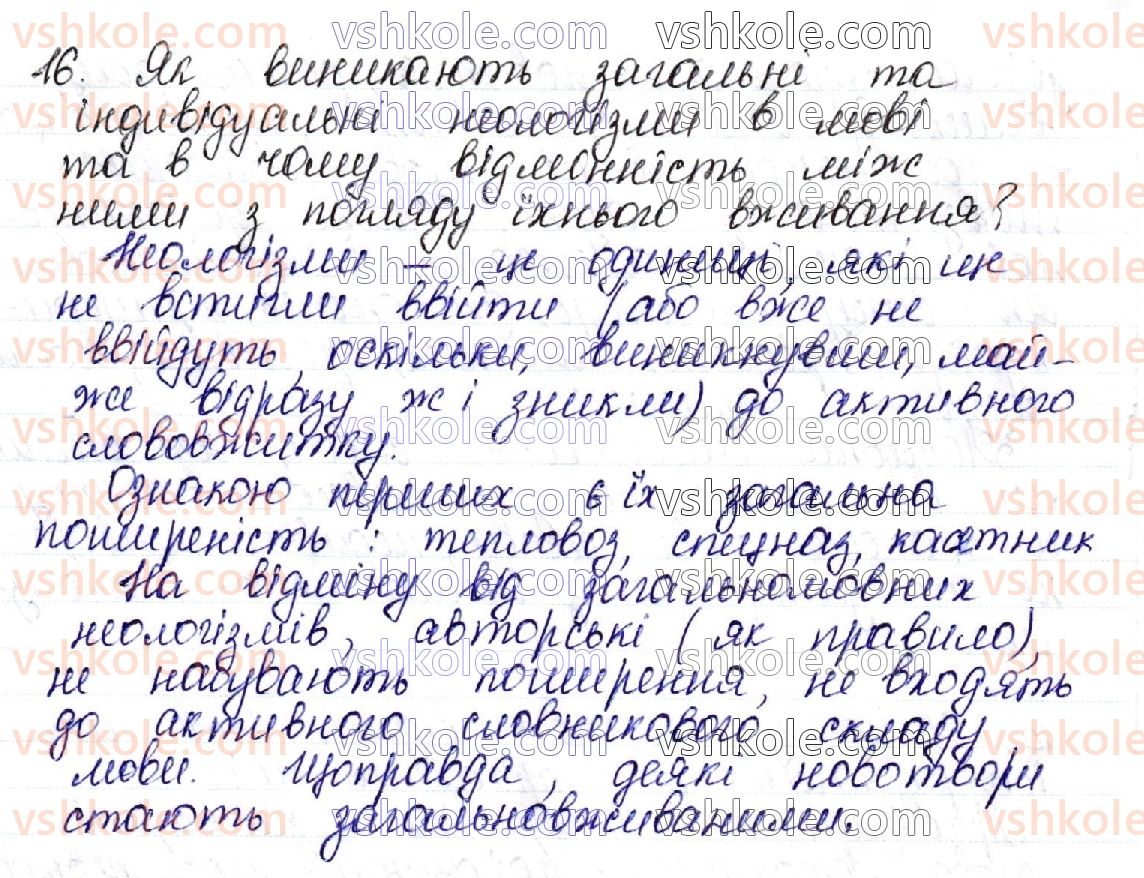 16. Як виникають загальні та
індивідуальні неологізми в мові
та в чому відмінність між
ними з погляду їхнього вживання?
Неологізми – це одиниці, які ще
не встигли ввійти (або вже не
ввійдуть, оскільки, виникнувши, май-
же відразу ж і зникли) до активного
слововжитку.
Ознакою перших є їх загальна
поширеність: тепловоз, спецназ, касетник
На відміну від загальномовних
неологізмів, авторські (як правило),
не набувають поширення, не входять
до активного словникового складу
мови. Щоправда, деякі новотвори
стають загальновживаними.